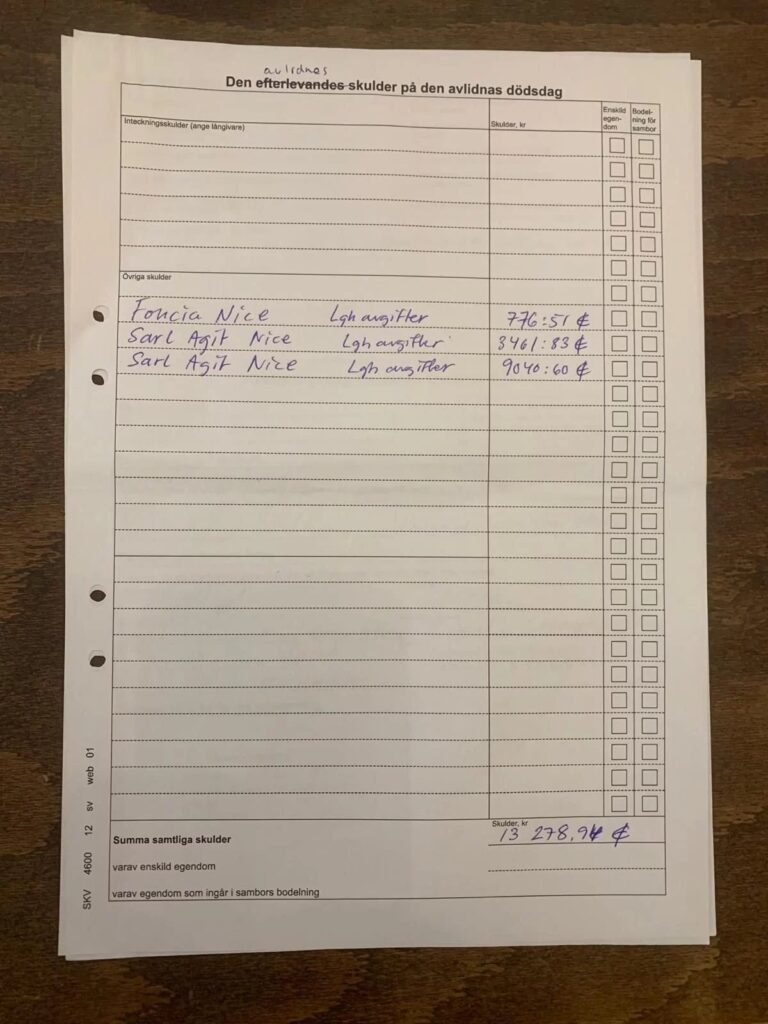 avlidnes
Den efterlevandes skulder på den avlidnas dödsdag
Inteckningsskulder (ange långivare)
Skulder, kr
Enskild egen-dom
Bodel-ning för sambor
Övriga skulder
Foncia Nice Lgh avgifter 776:51 €
Sarl Agit Nice Lgh avgifter 3461:83 €
Sarl Agit Nice Lgh avgifter 9040:60 €
Skulder, kr
Summa samtliga skulder 13 278,94 €
varav enskild egendom
varav egendom som ingår i sambors bodelning
SKV 4600 12 sv web 01